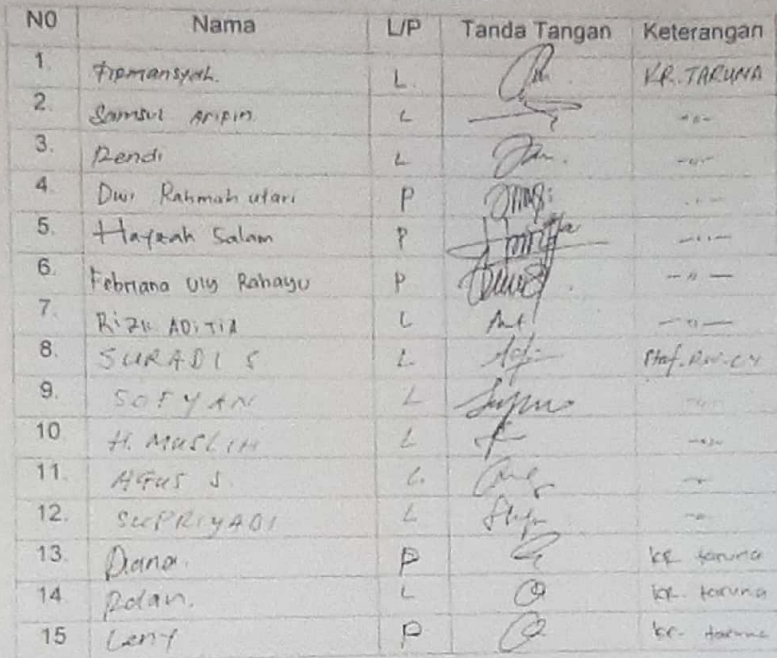 N0 Nama L/P Tanda Tangan Keterangan
1. Firmansyah. L. KR. TARUNA
2. Samsul Aripin L -"-
3. Rendi L -"-
4. Dwi Rahmah utari P -"-
5. Hayzah Salam P -"-
6. Febriana Uly Rahayu P -"-
7. Rizki ADITIA L -"-
8. SURADI S L Staf.RW.
9. SOFYAN L -"-
10 H. MUSLIH L -"-
11. AGUS S L. -"-
12. SUPRIYADI L -"-
13. Diana. P kr taruna
14 Rolan. L kr. taruna
15 Leny P kr. taruna